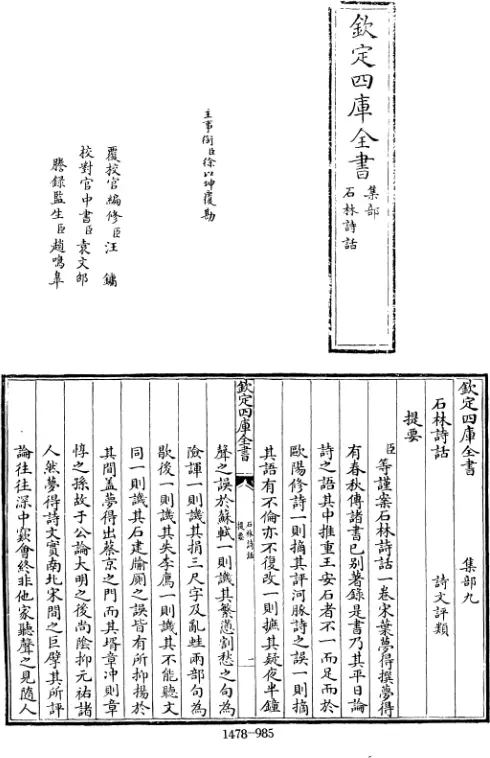 欽定四庫全書
集部
石林詩話
主事銜臣徐以坤覆勘
覆校官編修臣汪鏞
校對官中書臣袁文邵
謄錄監生臣趙鳴臯
欽定四庫全書
集部九
石林詩話
詩文評類
提要
臣等謹案石林詩話一卷宋葉夢得撰夢得
有春秋傳諸書已别著錄是書乃其平日論
詩之語其中推重王安石者不一而足而於
歐陽修詩一則摘其評河豚詩之誤一則摘
其語有不倫亦不復改一則摭其疑夜半鐘
欽定四庫全書
石林詩話
提要
一
聲之誤於蘇軾一則譏其繁憊割愁之句為
險諢一則譏其捐三尺字及亂蛙兩部句為
歇後一則譏其失李廌一則譏其不能聽文
同一則譏其石建牏厠之誤皆有所抑揚於
其間盖夢得出蔡京之門而其壻章冲則章
惇之孫故于公論大明之後尚陰抑元祐諸
人然夢得詩文實南北宋間之巨擘其所評
論往往深中窽會終非他家聽聲之見隨人
1478-985